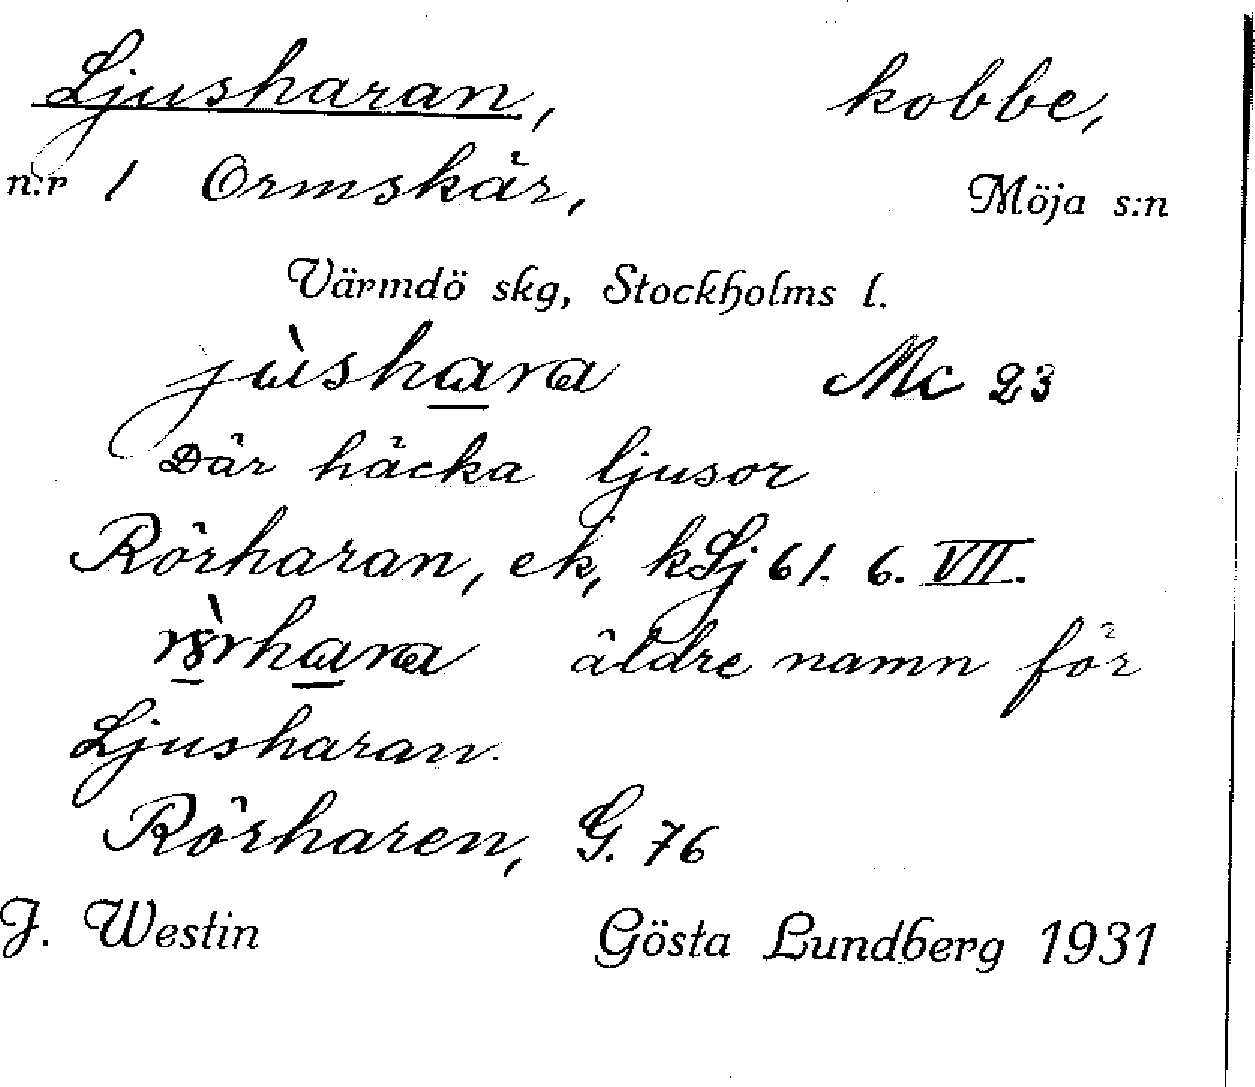 Ljusharan, kobbe,
n:r 1 Ormskär, Möja s:n
Värmdö skg, Stockholms l.
jùshara Mc 23
Där häcka ljusor
Rörharan, ek, kLj 61. 6. VII.
rö̀rhara äldre namn för
Ljusharan.
Rörharen, G. 76
J. Westin Gösta Lundberg 1931